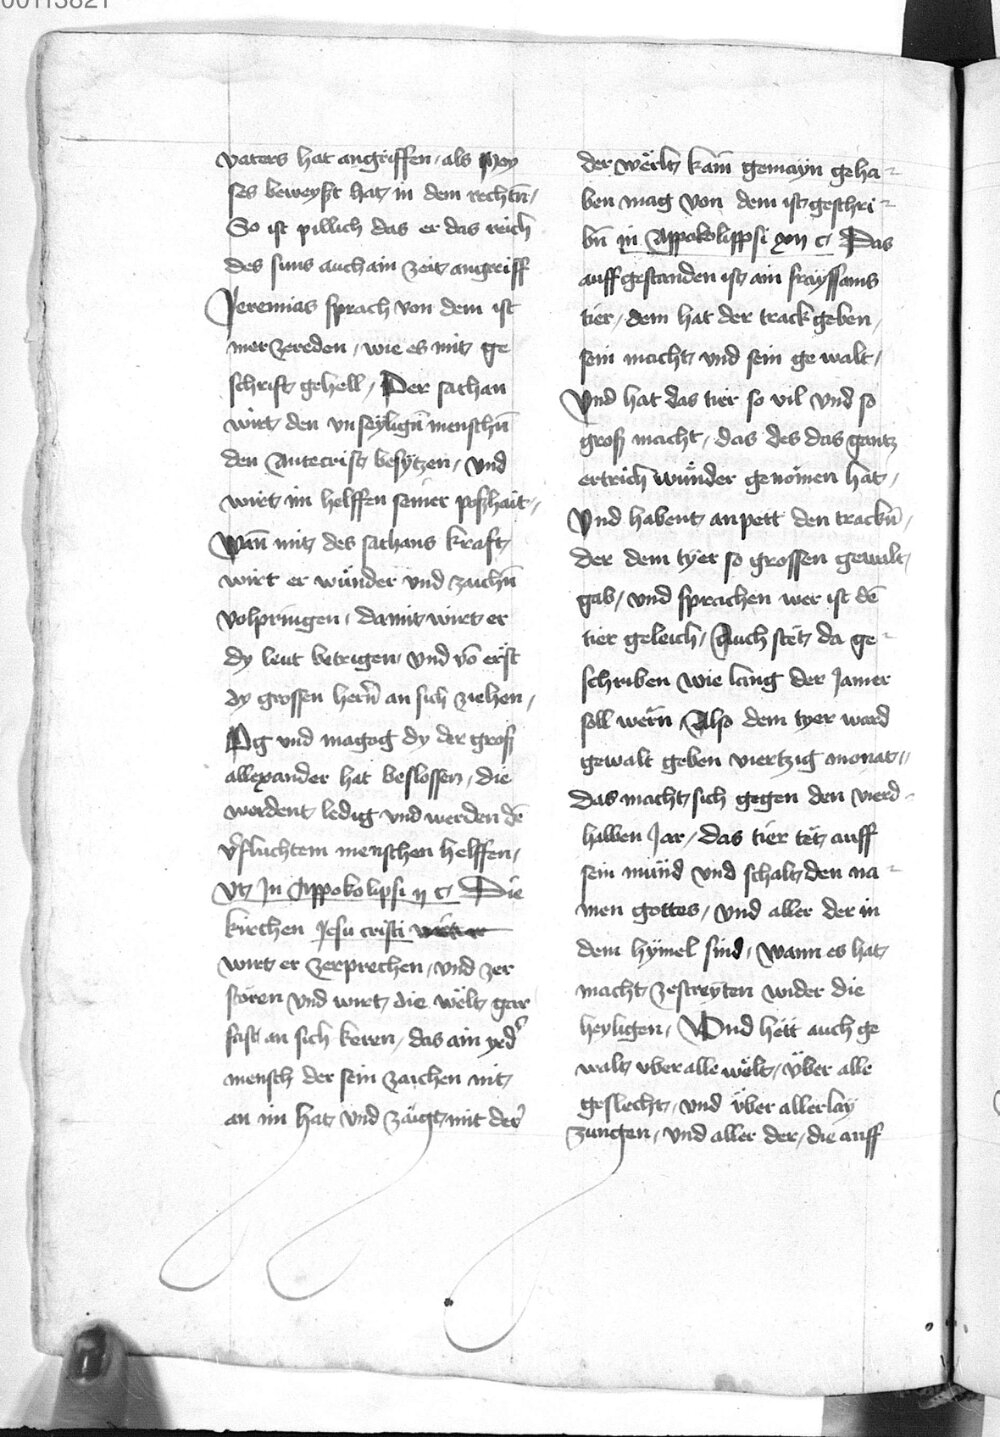 00113821
vaters hat angriffen / als Moy
ses beweyst hat / in dem rechtn̄ /
So ist pillich das er das reich
des suns auch ain zeit angreiff
Jeremias sprach von dem ist
mer zereden / wie es mit ge
schrift gehell / Der sathan
wirt den vnseylign̄ menschn̄
den Antecrist besytzen / vnd
wirt im helffen seiner poszhait /
Wan̄ mit des sathans kraft
wirt er wunder vnd zaichn̄
volpringen / damit wirt er
dy leut betrigen vnd vō erst
dy grossen hern̄ an sich ziehen /
Og vnd magog dy der grosz
allexander hat beslossen / die
werdent ledig vnd werden dē
v̄fluchtem menschen helffen /
Vt Jn Appokolipsi ij c Die
kirchen Jesu cristi
wirt er zerprechen / vnd zer
storen vnd wirt die welt gar
fast an sich keren / das ain yed̓
mensch der sein zaichen nit
an im hat vnd zaigt mit der̓
der werlt kain̄ gemayn geha
ben mag von dem ist geschri
bn̄ in Appokolippsi xiij c Das
auff gestanden ist ain frayssams
tier / dem hat der track geben /
sein macht vnd sein ge walt /
Vnd hat das tier so vil vnd so
grosz macht / das des das gantz
ertrich wunder genomen hat /
Vnd habent anpett den trackn̄ /
der dem tyer so grossen gewalt
gab / vnd sprachen wer ist dē
tier geleich / Auch stet da ge
schriben wie lang der Jamer
soll wern Also dem tyer ward
gewalt geben viertzig monat //
Das macht sich gegen den vierd
halben Jar / das tier tet auff
sein mund vnd schalt den na
men gottes / vnd aller der in
dem hymel sind / wann es hat
macht zestreyten wider die
heyligen / Vnd hett auch ge
walt vber alle welt / vber alle
geslecht / vnd vber allerlay
zungen / vnd aller der / die auff